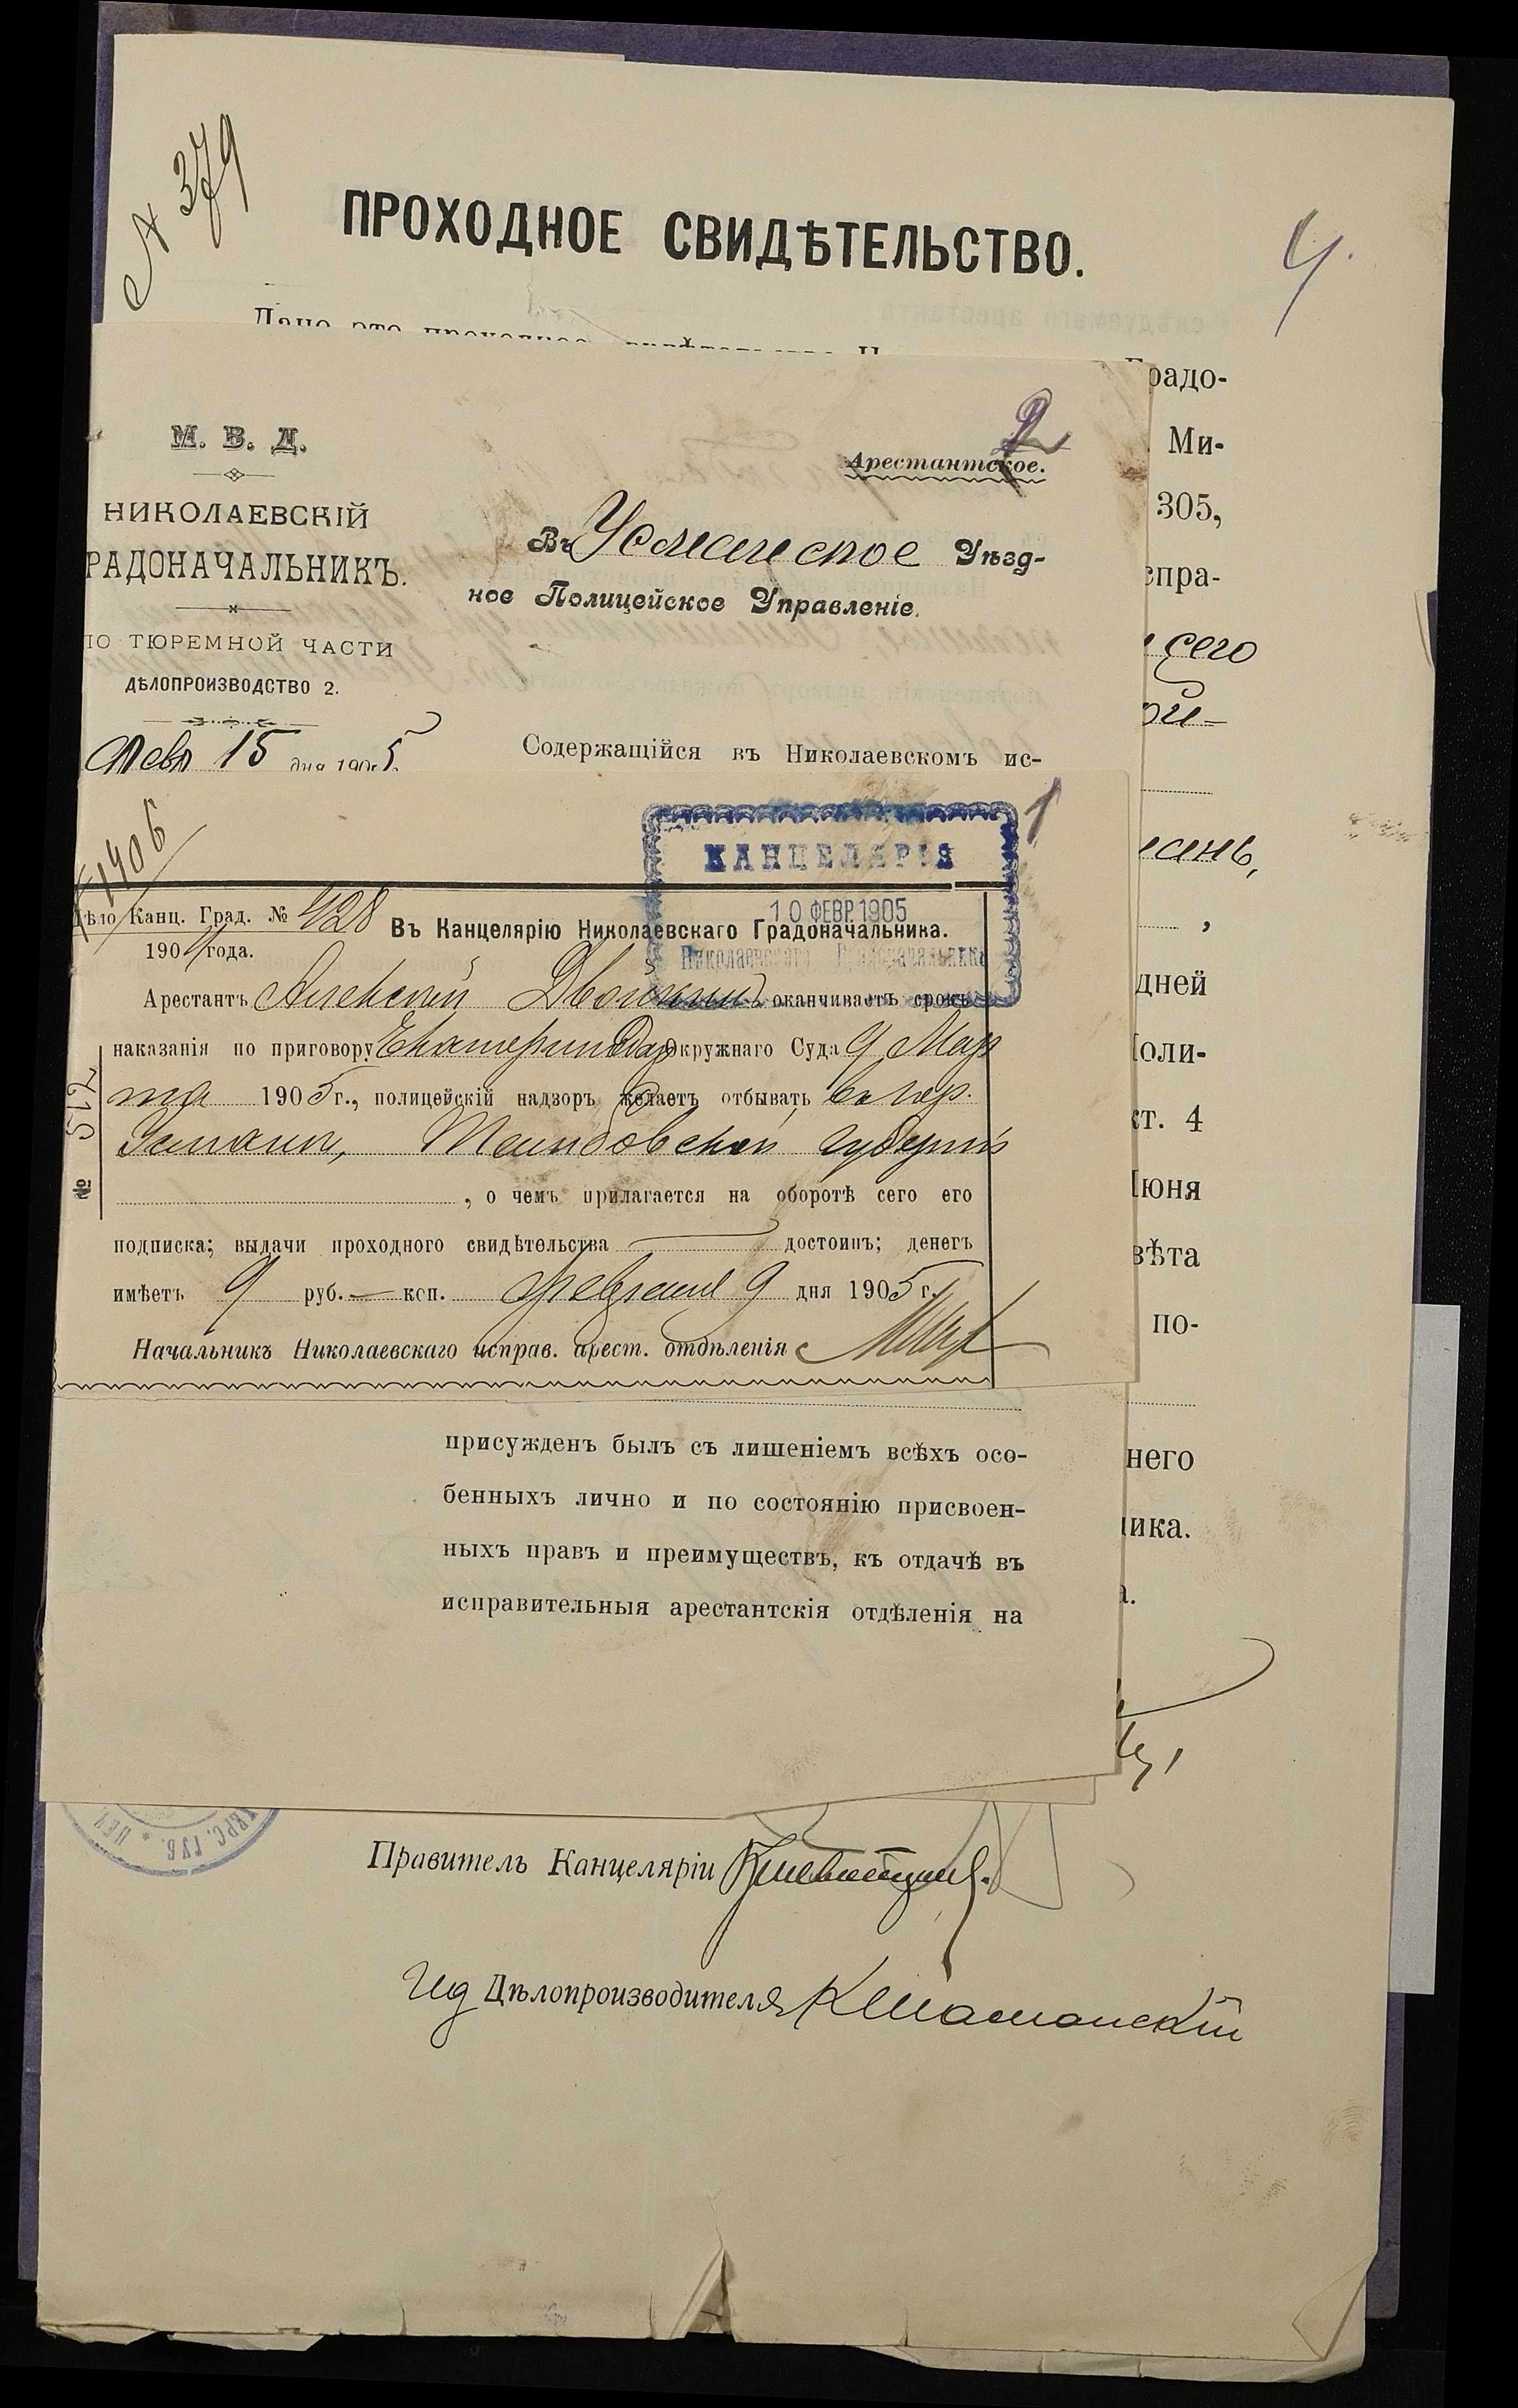 № 379
ПРОХОДНОЕ СВИДѢТЕЛЬСТВО.
4.
Дано это проходное
Градо-
Ми-
305,
спра-
сего
дней
Поли-
ст. 4
Іюня
вѣта
по-
него
ника.
а.
М. В. Д.
НИКОЛАЕВСКІЙ
РАДОНАЧАЛЬНИКЪ.
ПО ТЮРЕМНОЙ ЧАСТИ
ДѢЛОПРОИЗВОДСТВО 2.
Февр 15 дня 1905
2
Арестантское.
Въ Усманское Уѣзд-
ное Полицейское Управленіе.
Содержащійся въ Николаевскомъ ис-
1
1406
КАНЦЕЛЯРІЯ
10 ФЕВР. 1905
Николаевскаго Градоначальника
Дѣло Канц. Град. № 428
1904 года.
Въ Канцелярію Николаевскаго Градоначальника.
Арестантъ Алексѣй Двойкинъ оканчиваетъ срокъ
наказанія по приговору Екатеринодар Окружнаго Суда 9 Мар
та 1905 г., полицейскій надзоръ желаетъ отбывать въ гор.
Усмани, Тамбовской губерніи
, о чемъ прилагается на оборотѣ сего его
подписка; выдачи проходного свидѣтельства — достоинъ; денегъ
имѣетъ 9 руб. — коп. Февраля 9 дня 1905 г.
Начальникъ Николаевскаго исправ. арест. отдѣленія
№ 512
присужденъ былъ съ лишеніемъ всѣхъ осо-
бенныхъ лично и по состоянію присвоен-
ныхъ правъ и преимуществъ, къ отдачѣ въ
исправительныя арестантскія отдѣленія на
ХЕРС. ГУБ.
Правитель Канцеляріи
Ид Дѣлопроизводителя К Шаманскій